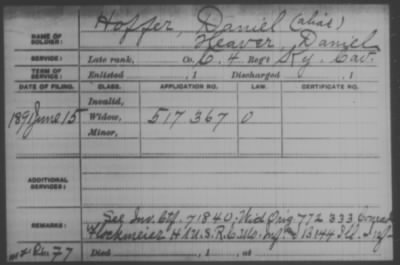 Hoffer, Daniel (alias)
NAME OF SOLDIER: Heaver, Daniel
SERVICE: Late rank, Co. C. 4 Reg't Ky. Cav.
TERM OF SERVICE: Enlisted , 1 Discharged , 1
DATE OF FILING. CLASS. APPLICATION NO. LAW. CERTIFICATE NO.
Invalid,
1891 June 15 Widow, 517367 0
Minor,
ADDITIONAL SERVICES:
REMARKS: See Inv. Ctf. 71840. Wid Orig 772 333 Conrad
Flockmeier H 1 U.S.R.C. Mo. Inf. & 13 & 144 Ill. Inf.
77 Died , 1 , at